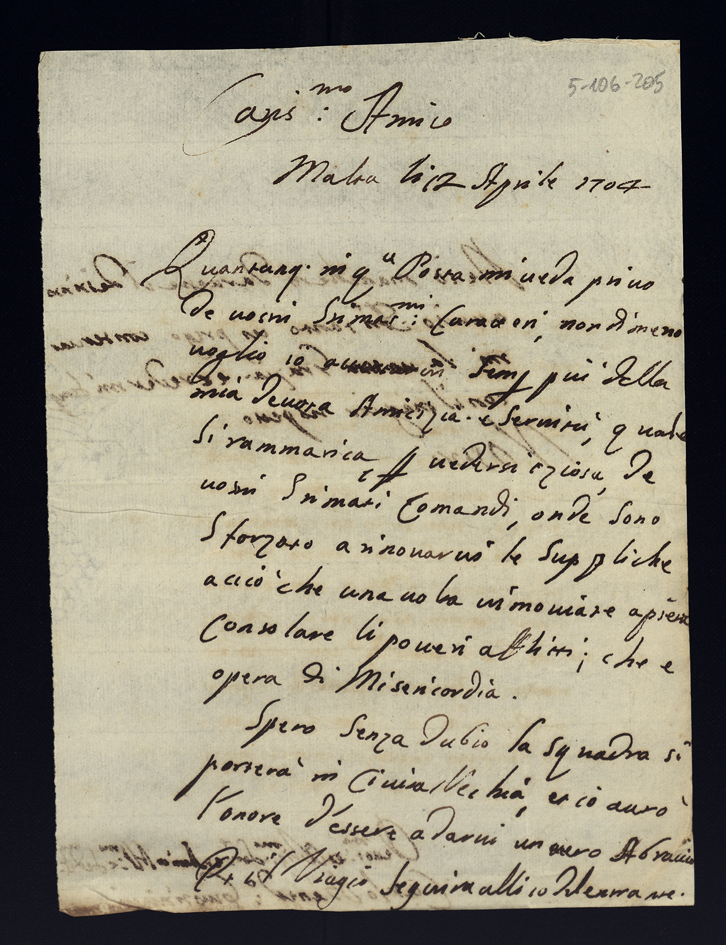 5-106-205
Caris:mo Amico
Malta li 12 Aprile 1704
Quantunq. in q.ta Posta mi veda privo
de vostri Stimat:mi Caratteri, nondimeno
voglio io in Semp più della
mia devota Amicizia e Servitù, quale
si rammarica p vedersi oziosa, de
vostri Stimati Comandi, onde sono
sforzato a rinovarvi le suppliche
acciò che una volta vi moviate a
consolare li poveri afflitti; che e
opera di Misericordia.
Spero senza dubio la squadra si
porterà in Civita Vechia, et io aurò
l'onore d'essere a darvi un vero Abraccio